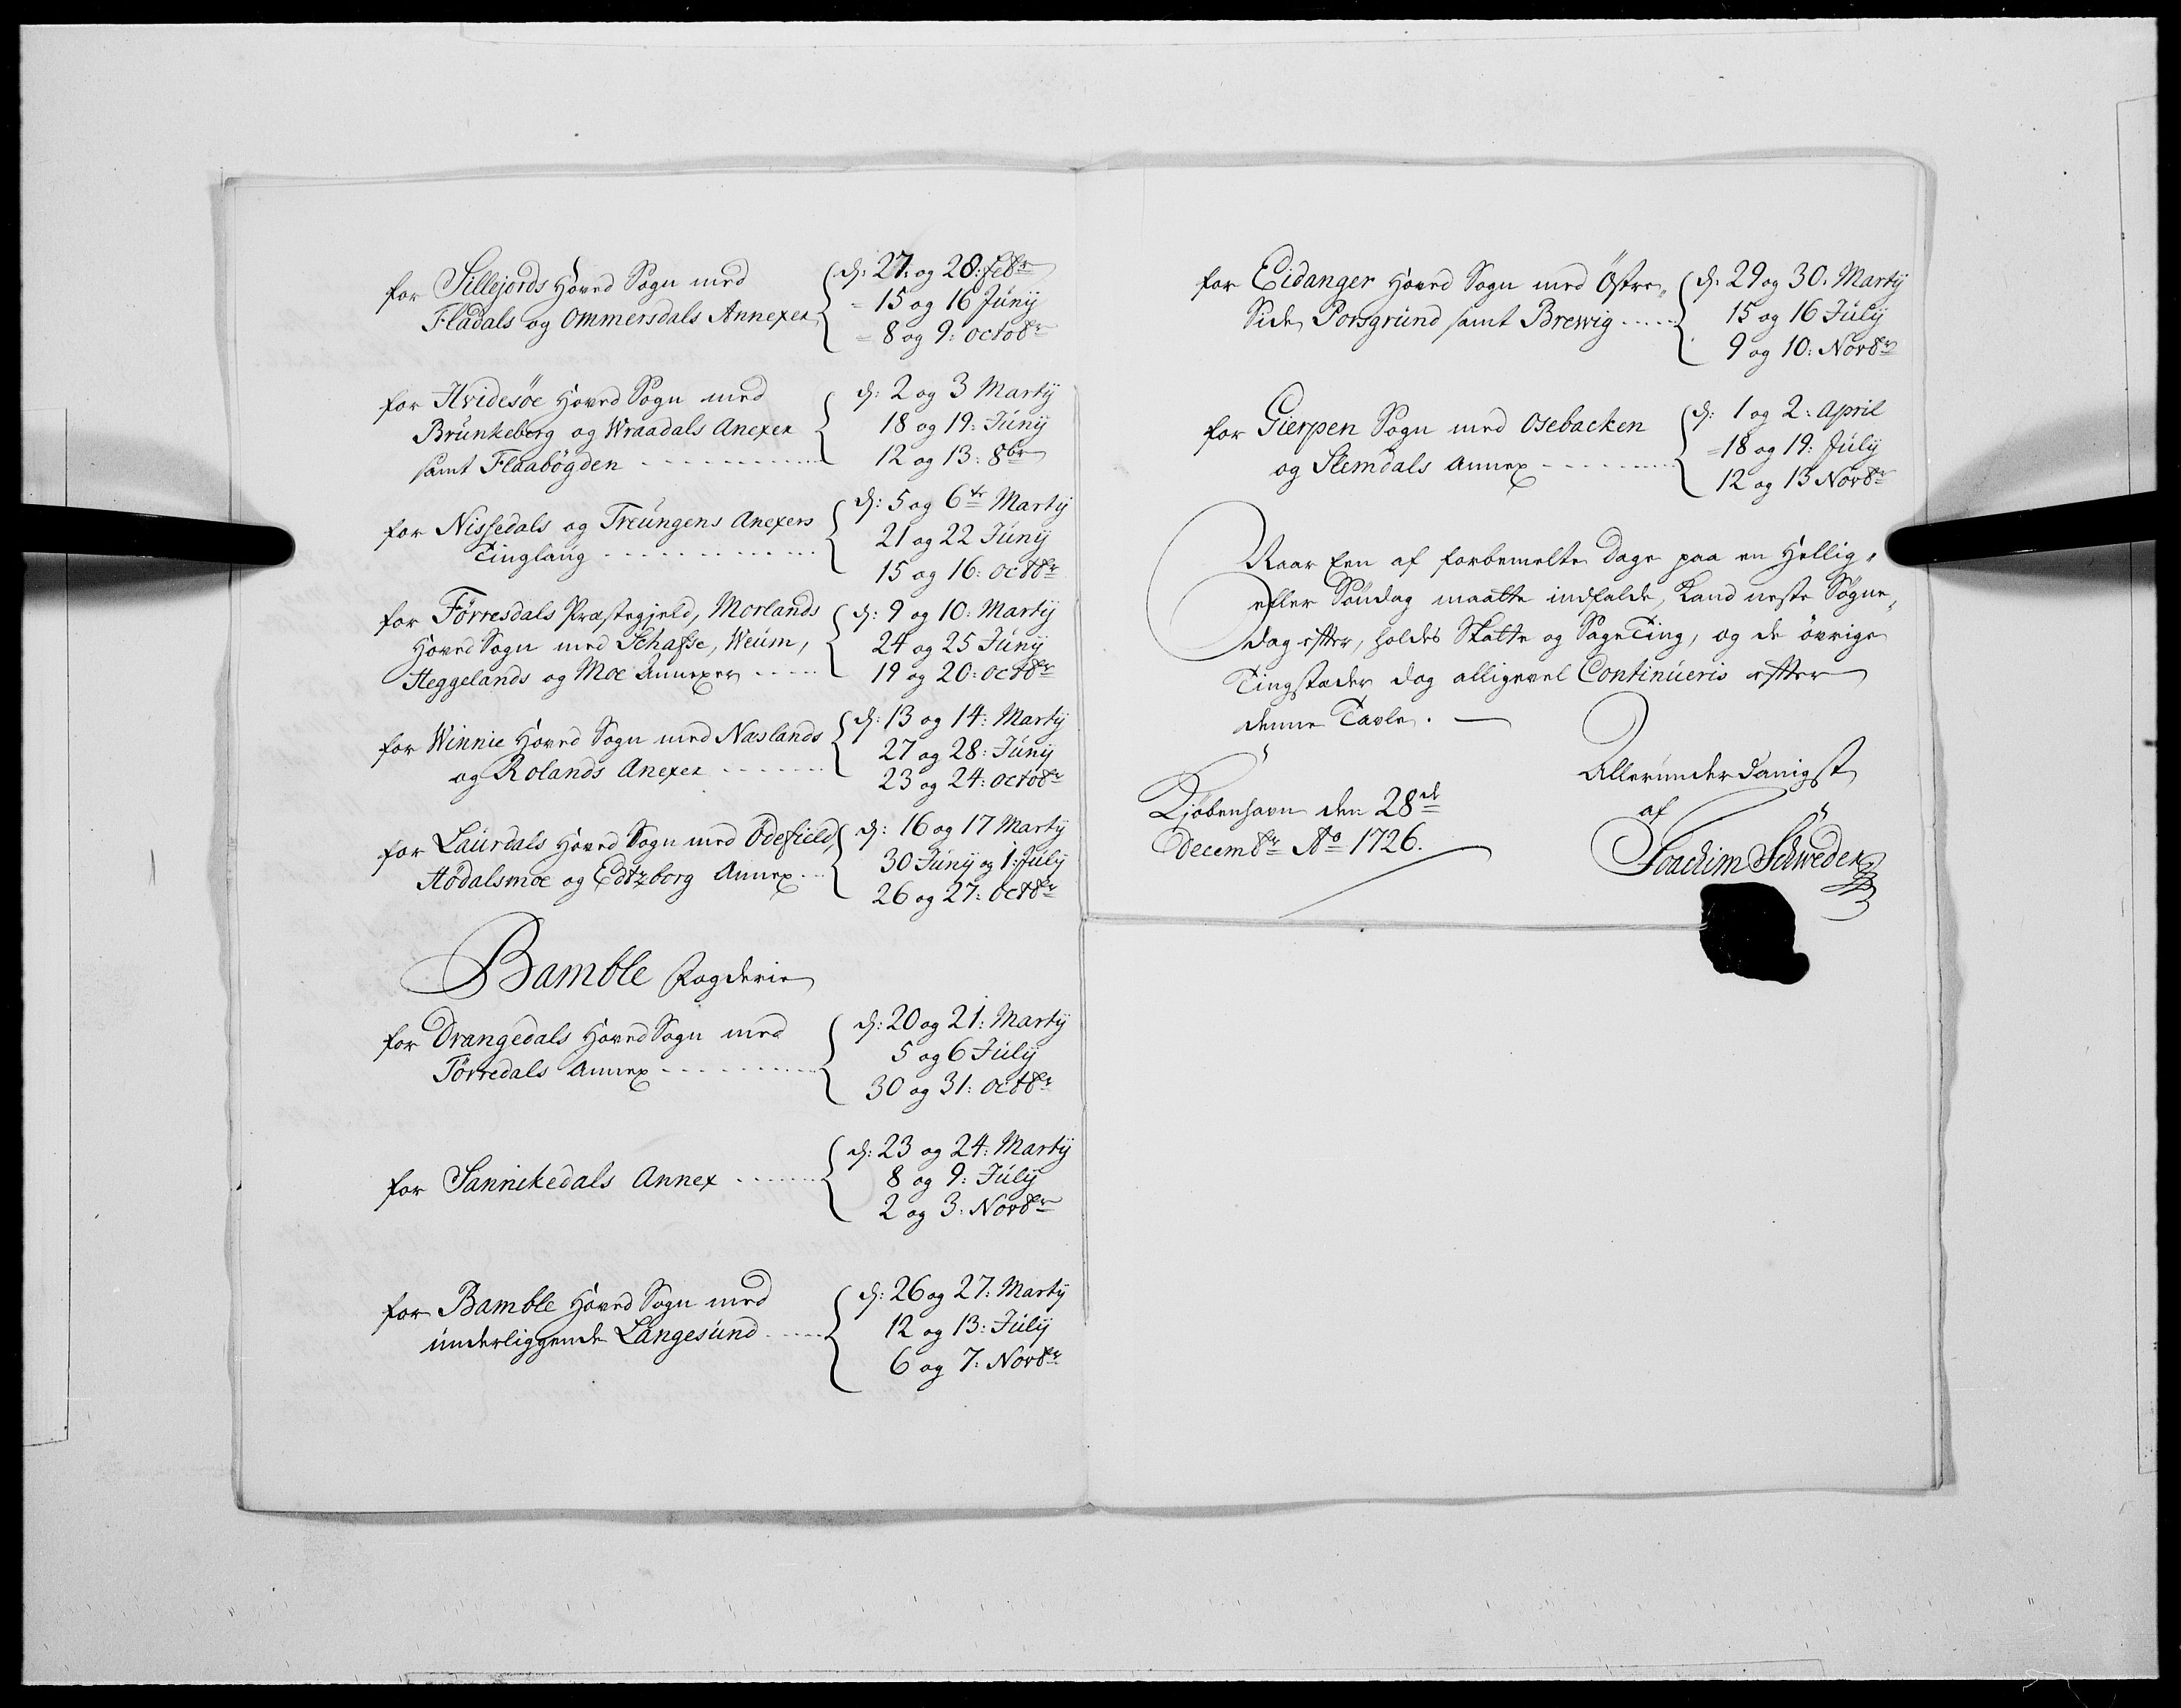 for Sillejords Hoved Sogn med
Fladals og Ommersdals Annexer
d: 27: og 28: Febr
= 15 og 16 Junij
= 8 og 9: octobr
for Hvidesöe Hoved Sogn med
Brunkeberg og Wraadals Anexer
samt Flaabögden
d: 2 og 3 Martij
18 og 19: Junij
12 og 13: 8br
for Nissedals og Treungens Anexers
Tinglaug
d: 5 og 6te Martij
21 og 22 Junij
15 og 16: octbr
for Förresdals Præstegjeld, Morlands
Hoved Sogn med Schafse, Weum,
Heggelands og Moe Annexer
d: 9 og 10: Martij
24 og 25 Junij
19 og 20: octbr
for Winnie Hoved Sogn med Næslands
og Rolands Anexer
d: 13 og 14: Martij
27 og 28: Junij
23 og 24: octobr
for Laurdals Hoved Sogn med Ödefield,
Hödalsmoe og Edtzborg Annex
d: 16 og 17 Martij
30 Junij og 1: Julij
26 og 27: octbr
Bamble Fogderie
for Drangedals Hoved Sogn med
Törredals Annex
d: 20 og 21: Martij
5 og 6 Julij
30 og 31: octbr
for Sannikedals Annex
d: 23 og 24: Martij
8 og 9: Julij
2 og 3: Novbr
for Bamble Hoved Sogn med
underliggende Langesund
d: 26 og 27: Martij
12 og 13: Julij
6 og 7: Novbr
for Eidanger Hoved Sogn med Östre
Side Porsgrund samt Brewig
d: 29 og 30: Martij
15 og 16 Julij
9 og 10: Novbr
for Gierpen Sogn med Osebacken
og Slemdals Annex
d: 1 og 2: April
= 18 og 19: Julij
12 og 13 Novbr
Naar Een af forbemelte Dage paa en Hellig„
eller Söndag maatte indfalde, Kand neste Sögne„
dag efter, holdes Skatte og Sage Ting, og de övrige
Tingstæder dog alligevel Continueris efter
denne Tavle.
Kjöbenhavn den 28de
Decembr Ao 1726.
Allerunderdanigst
af
Joachim Schweder